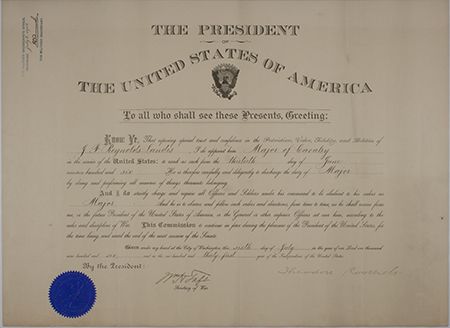 THE PRESIDENT
OF
THE UNITED STATES OF AMERICA
To all who shall see these Presents, Greeting:
Know Ye, That reposing special trust and confidence in the Patriotism, Valor, Fidelity, and Abilities of
J. F. Reynolds Landis, I do appoint him Major of Cavalry
in the service of the United States: to rank as such from the thirtieth day of June
nineteen hundred and six. He is therefore carefully and diligently to discharge the duty of Major
by doing and performing all manner of things thereunto belonging.
And I do strictly charge and require all Officers and Soldiers under his command to be obedient to his orders as
Major. And he is to observe and follow such orders and directions, from time to time, as he shall receive from
me, or the future President of the United States of America, or the General or other superior Officers set over him, according to the
rules and discipline of War. This Commission to continue in force during the pleasure of the President of the United States, for
the time being, and until the end of the next session of the Senate.
Given under my hand at the City of Washington, this day of July in the year of our Lord one thousand
nine hundred and six, and in the one hundred and thirty-first year of the Independence of the United States.
By the President:
Theodore Roosevelt
Wm H Taft
Secretary of War.